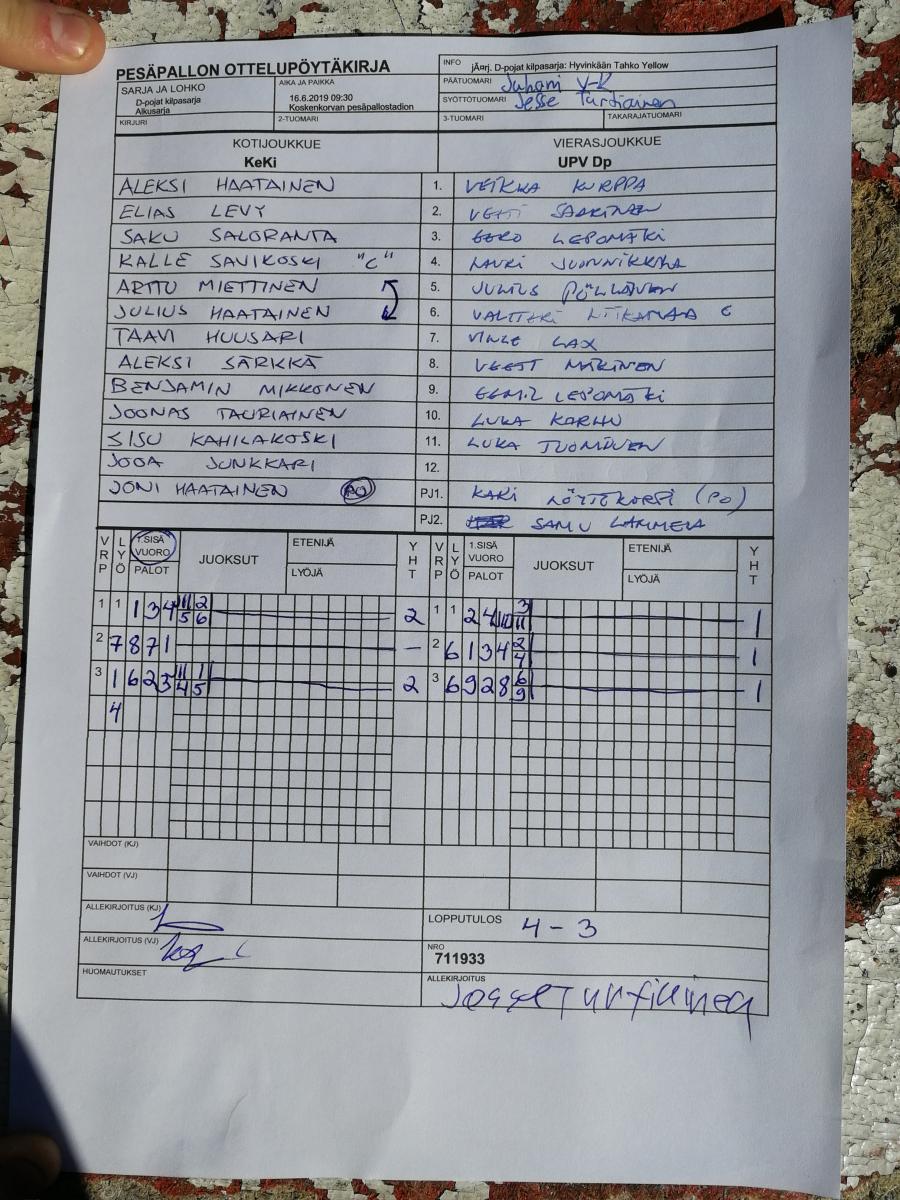 PESÄPALLON OTTELUPÖYTÄKIRJA
INFO jÃ¤rj. D-pojat kilpasarja: Hyvinkään Tahko Yellow
SARJA JA LOHKO
D-pojat kilpasarja
Alkusarja
AIKA JA PAIKKA
16.6.2019 09:30
Koskenkorvan pesäpallostadion
PÄÄTUOMARI Juhani Y-K
SYÖTTÖTUOMARI Jesse Turtiainen
KIRJURI
2-TUOMARI
3-TUOMARI
TAKARAJATUOMARI
KOTIJOUKKUE
KeKi
VIERASJOUKKUE
UPV Dp
ALEKSI HAATAINEN 1. VEIKKA KURPPA
ELIAS LEVY 2. VETTI SAARINEN
SAKU SALORANTA 3. EERO LEPOMÄKI
KALLE SAVIKOSKI "C" 4. LAURI
ARTTU MIETTINEN 5. JULIUS PÖLLÄNEN
JULIUS HAATAINEN 6. VALTTERI C
TAAVI HUUSARI 7. VILLE LAX
ALEKSI SÄRKKÄ 8. VEETI MÄKINEN
BENJAMIN MIKKONEN 9. EEMIL LEPOMÄKI
JOONAS TAURIAINEN 10. LUKA KARHU
SISU KAHILAKOSKI 11. LUKA TUOMINEN
JOOA JUNKKARI 12.
JONI HAATAINEN PO PJ1. (PO)
PJ2. SAMU LAMMELA
VRP LYÖ 1.SISÄ VUORO PALOT JUOKSUT ETENIJÄ LYÖJÄ YHT VRP LYÖ 1.SISÄ VUORO PALOT JUOKSUT ETENIJÄ LYÖJÄ YHT
1 1 1 3 4 11/5 2/6 2 1 1 2 4 10 3/11 1
2 7 8 7 1 — 2 6 1 3 4 2/4 1
3 1 6 2 3 11/4 1/5 2 3 6 9 2 8 6/9 1
4
VAIHDOT (KJ)
VAIHDOT (VJ)
ALLEKIRJOITUS (KJ)
LOPPUTULOS 4 - 3
ALLEKIRJOITUS (VJ)
NRO
711933
HUOMAUTUKSET
ALLEKIRJOITUS Jesse Turtiainen